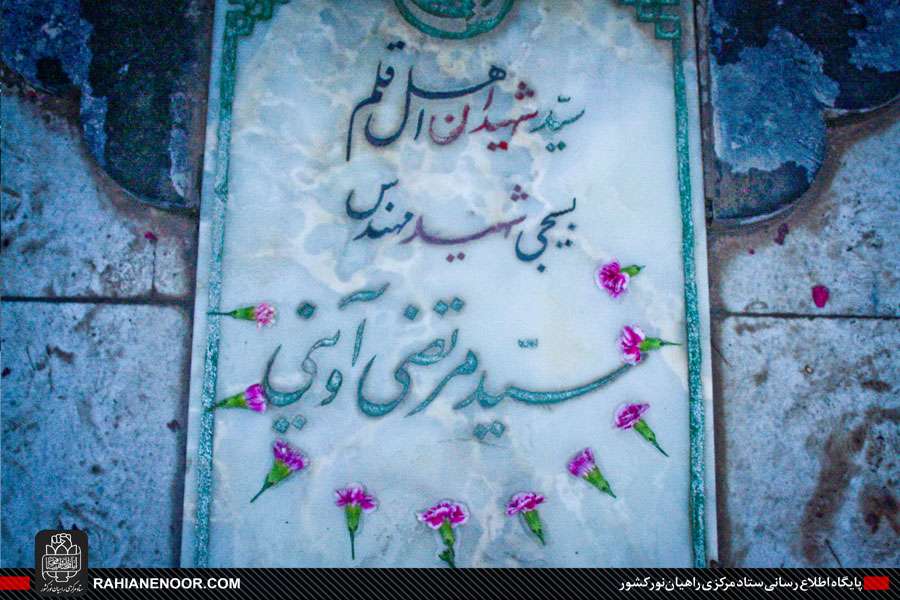 سیّد شهیدان اهل قلم
بسیجی شهید مهندس
سیّد مرتضی آوینی
RAHIANENOOR.COM
پایگاه اطلاع رسانی ستاد مرکزی راهیان نور کشور